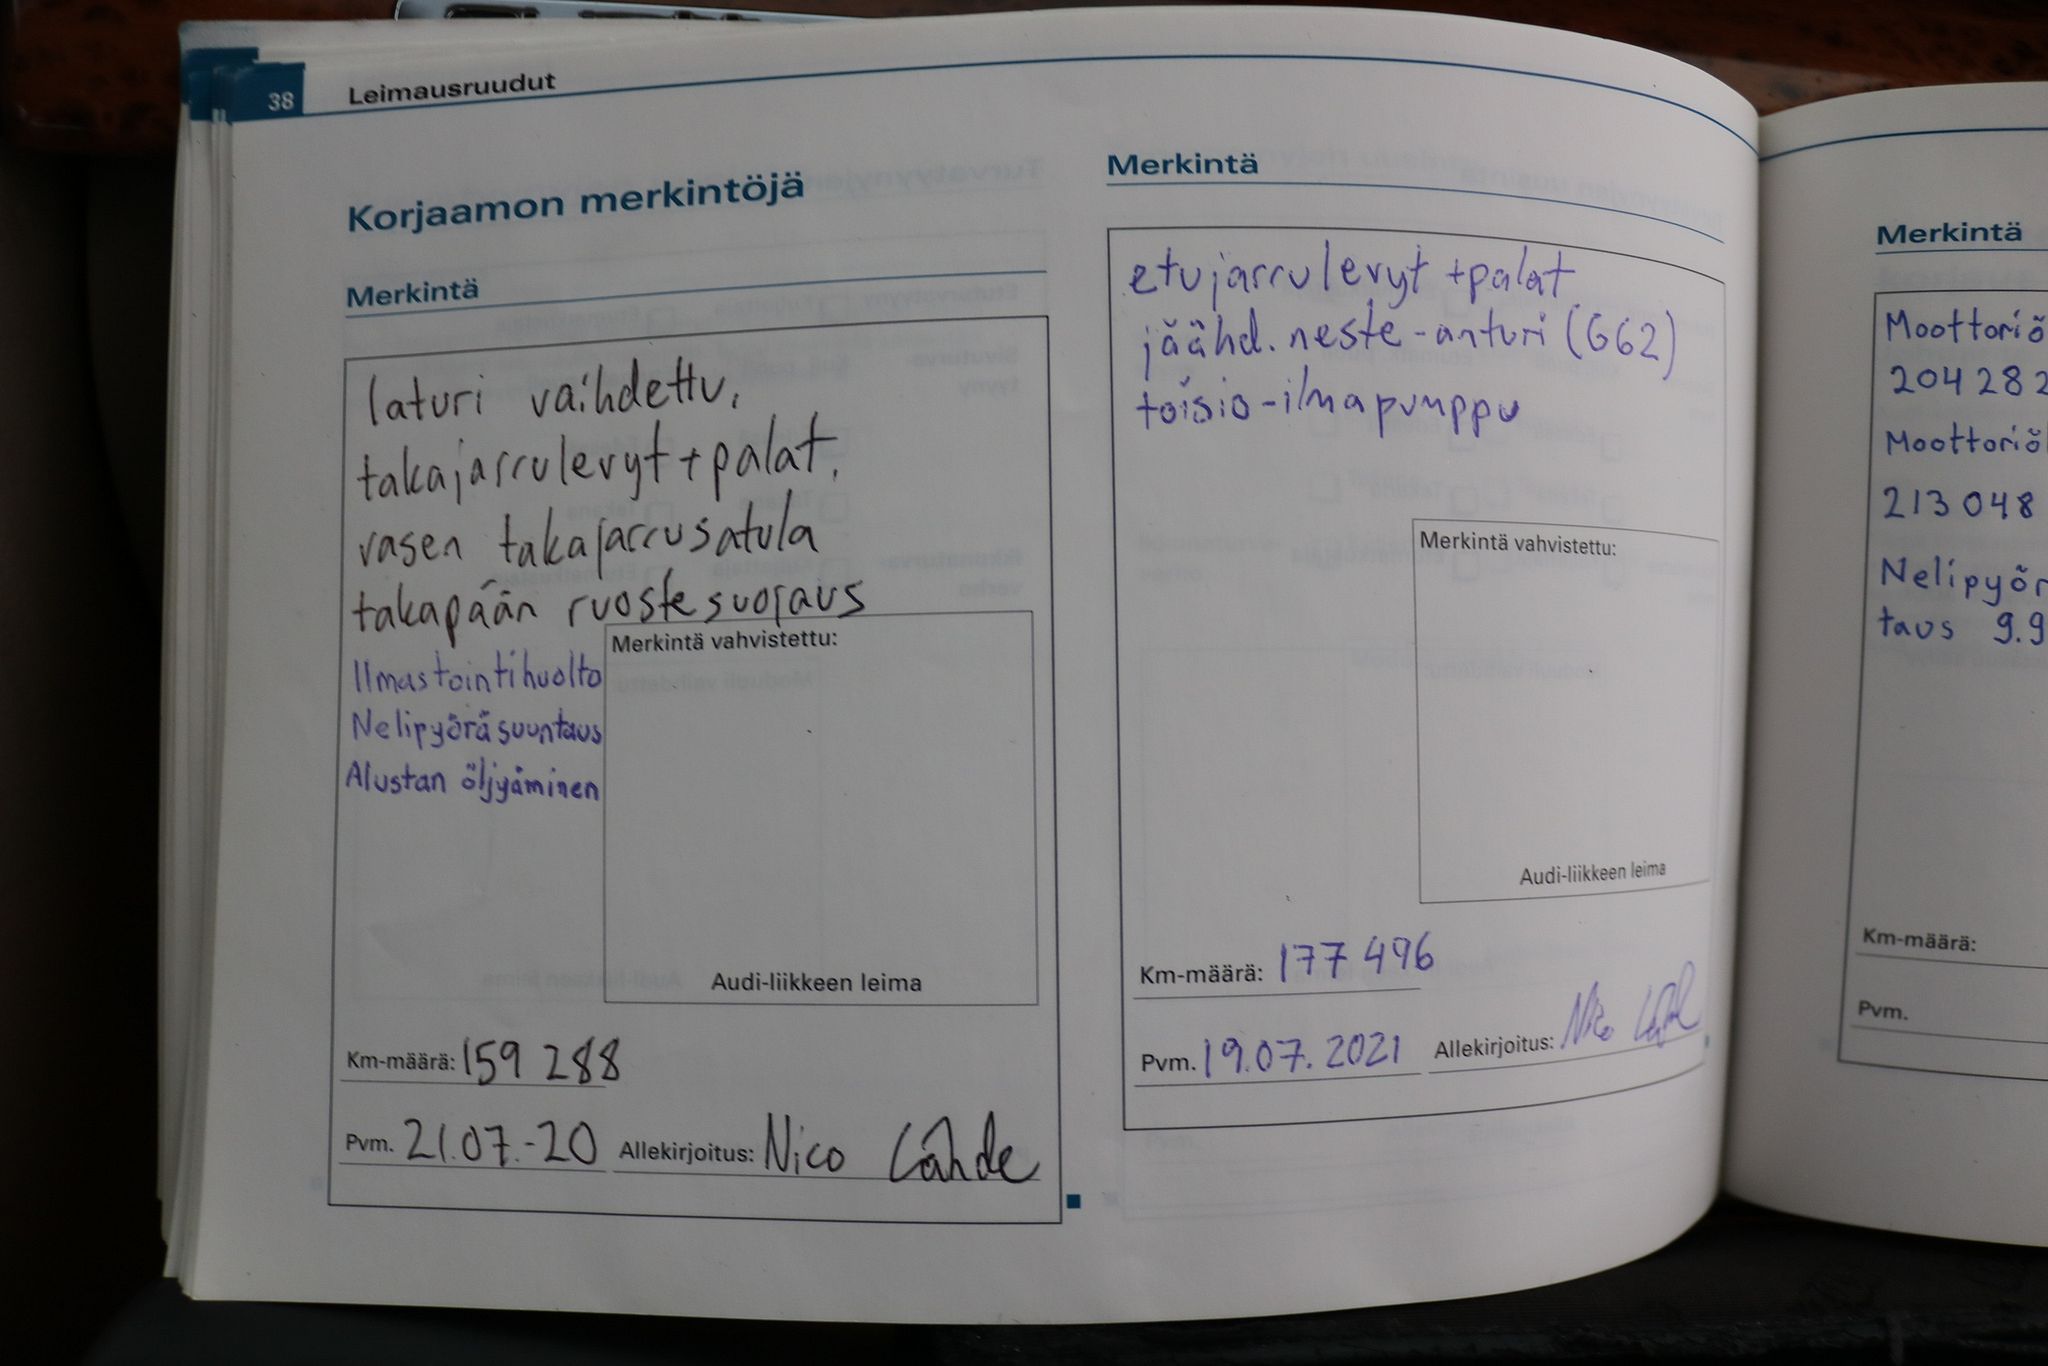 38
Leimausruudut
Korjaamon merkintöjä
Merkintä
laturi vaihdettu,
takajarrulevyt + palat,
vasen takajarrusatula
takapään ruostesuojaus
Ilmastointihuolto
Nelipyöräsuuntaus
Alustan öljyäminen
Merkintä vahvistettu:
Audi-liikkeen leima
Km-määrä: 159 288
Pvm. 21.07.-20 Allekirjoitus: Nico Lähde
Merkintä
etujarrulevyt + palat
jäähd. neste-anturi (G62)
toisio-ilmapumppu
Merkintä vahvistettu:
Audi-liikkeen leima
Km-määrä: 177 496
Pvm. 19.07.2021 Allekirjoitus: Nico
Merkintä
Moottoriö
204 282
Moottoriöl
213 048
Nelipyör
taus 9.9
Km-määrä:
Pvm.